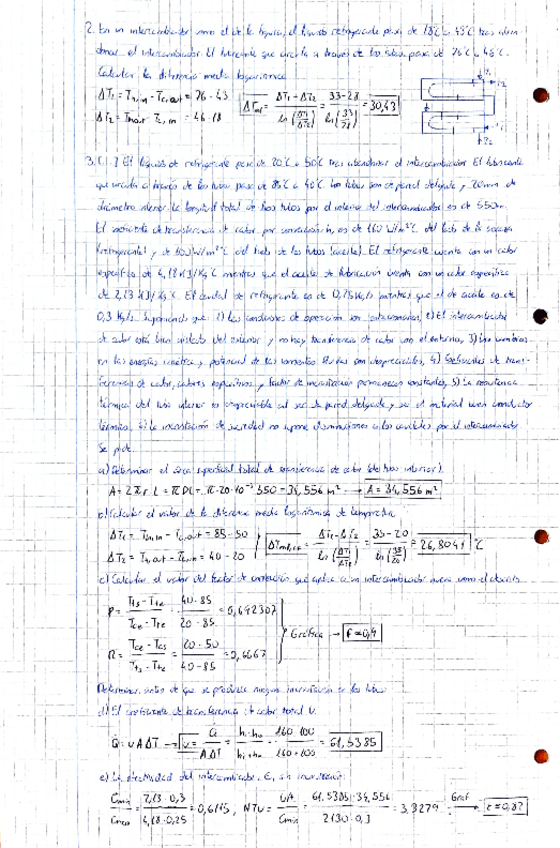 2. En un intercambiador como el de la figura, el líquido refrigerante pasa de 18°C a 43°C tras abandonar
el intercambiador. El lubricante que circula a través de los tubos pasa de 76°C a 46°C.
Calcular la diferencia media logarítmica
ΔT₁ = Th,in - Tc,out = 76 - 43
ΔTml = (ΔT₁ - ΔT₂) / ln(ΔT₁/ΔT₂) = (33 - 28) / ln(33/28) = 30,43
ΔT₂ = Th,out - Tc,in = 46 - 18
3. El líquido de refrigerante pasa de 20°C a 50°C tras abandonar el intercambiador. El lubricante
que circula a través de los tubos pasa de 85°C a 40°C. Los tubos son de pared delgada y 20mm de
diámetro interior. La longitud total de los tubos por el interior del intercambiador es de 550m.
El coeficiente de transferencia de calor por convección, h, es de 160 W/m²°C del lado de la carcasa
(refrigerante) y de 100 W/m²°C del lado de los tubos (aceite). El refrigerante cuenta con un calor
específico de 4,18 KJ/Kg°C mientras que el aceite de lubricación cuenta con un calor específico
de 2,13 KJ/Kg°C. El caudal de refrigerante es de 0,25 Kg/s mientras que el de aceite es de
0,3 Kg/s. Suponiendo que: 1) Las condiciones de operación son estacionarias, 2) El intercambiador
de calor está bien aislado del exterior y no hay transferencia de calor con el entorno, 3) Los cambios
en las energías cinética y potencial de las corrientes fluidas son despreciables, 4) Coeficientes de transferencia
de calor, calores específicos y factor de incrustación permanecen constantes, 5) La resistencia
térmica del tubo interior es despreciable al ser de pared delgada y ser el material buen conductor
térmico, 6) La incrustación de suciedad no supone disminuciones a los caudales por el intercambiador
Se pide:
a) Determinar el área superficial total de transferencia de calor (de tubo interior).
A = 2πr·L = πDL = π·20·10⁻³·550 = 34,556 m² → A = 34,556 m²
b) Calcular el valor de la diferencia media logarítmica de temperatura
ΔT₁ = Th,in - Tc,out = 85 - 50
ΔTml,cf = (ΔT₁ - ΔT₂) / ln(ΔT₁/ΔT₂) = (35 - 20) / ln(35/20) = 26,8041 °C
ΔT₂ = Th,out - Tc,in = 40 - 20
c) Calcular el valor del factor de corrección que aplica a un intercambiador como el descrito
P = (Tts - Tte) / (Tce - Tte) = (40 - 85) / (20 - 85) = 0,692307
Gráfica → F≈0,4
R = (Tce - Tcs) / (Tts - Tte) = (20 - 50) / (40 - 85) = 0,6667
Determinar, antes de que se produzca ninguna incrustación en los tubos
d) El coeficiente de transferencia de calor total U.
Q̇ = U A ΔT → U = Q̇ / (A ΔT) = hi·ho / (hi + ho) = 160·100 / (160 + 100) = 61,5385
e) La efectividad del intercambiador, ε, sin incrustación:
Cmin/Cmax = 2,13·0,3 / 4,18·0,25 = 0,6115, NTU = UA/Cmin = 61,5385·34,556 / 2130·0,3 = 3,3279 Graf → ε = 0,82